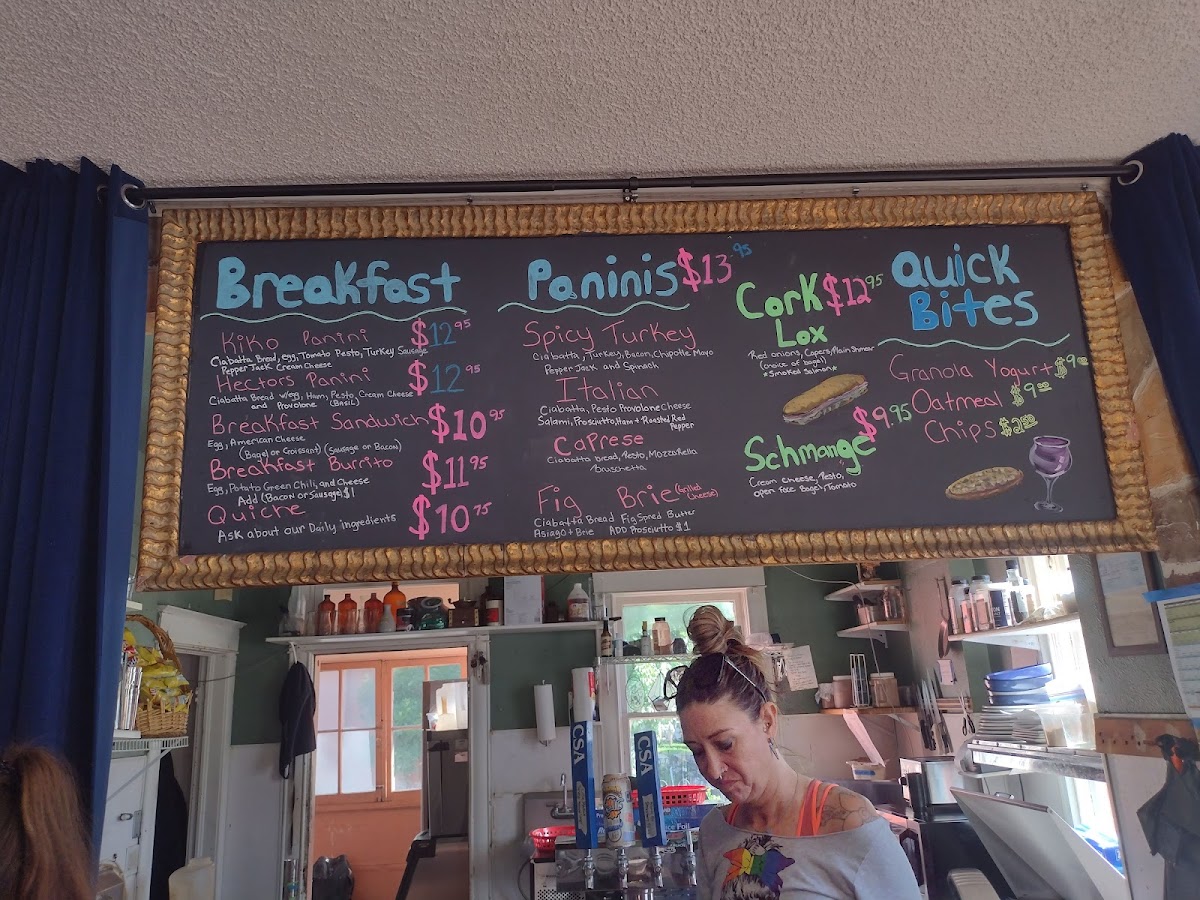 Breakfast
Kiko Panini $12.95
Ciabatta Bread, egg, Tomato Pesto, Turkey Sausage
Pepper Jack Cream Cheese
Hectors Panini $12.95
Ciabatta Bread w/egg, Ham, Pesto, Cream Cheese
and Provolone (Basil)
Breakfast Sandwich $10.95
Egg, American Cheese
(Bagel or Croissant) (Sausage or Bacon)
Breakfast Burrito $11.95
Egg, Potato Green Chili, and Cheese
Add (Bacon or Sausage) $1
Quiche $10.75
Ask about our Daily ingredients
Paninis $13.95
Spicy Turkey
Ciabatta, Turkey, Bacon, Chipotle Mayo
Pepper Jack and Spinach
Italian
Ciabatta, Pesto Provolone Cheese
Salami, Prosciutto, Ham + Roasted Red
Pepper
Caprese
Ciabatta bread, Pesto, Mozzarella
Bruschetta
Fig Brie (Grilled
Cheese)
Ciabatta Bread Fig Spred Butter
Asiago + Brie ADD Prosciutto $1
Cork $12.95
Lox
Red onions, Capers/Plain Shmear
(choice of bagel)
*Smoked Salmon*
$9.95
Schmange
Cream cheese, Pesto,
Open Face Bagel, Tomato
Quick
Bites
Granola Yogurt $9.00
Oatmeal $9.00
Chips $2.50
CSA
CSA